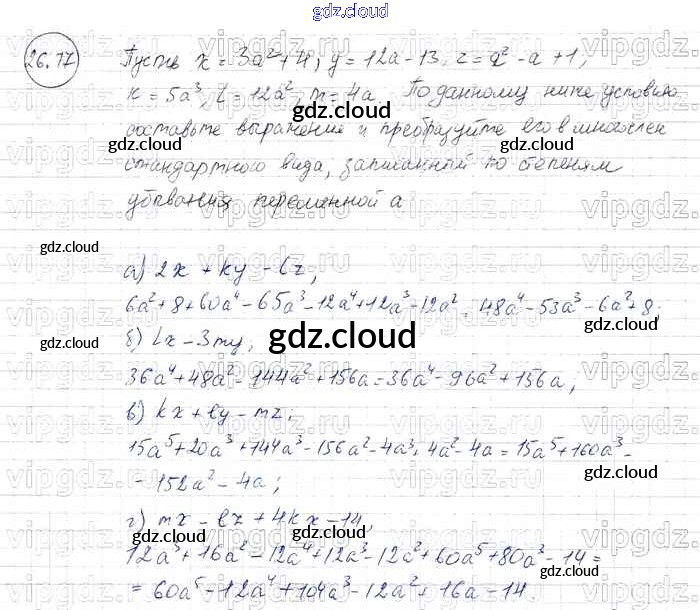 gdz.cloud
26.17
Пусть x = 3a² + 4, y = 12a - 13, z = a² - a + 1,
k = 5a³, l = 12a², m = 4a. По данному ниже условию
gdz.cloud
составьте выражение и преобразуйте его в многочлен
стандартного вида, записанный по степеням
убывания переменной a
gdz.cloud
gdz.cloud
gdz.cloud
а) 2x + ky - lz;
6a² + 8 + 60a⁴ - 65a³ - 12a⁴ + 12a³ - 12a² = 48a⁴ - 53a³ - 6a² + 8;
gdz.cloud
gdz.cloud
б) lx - 3my;
36a⁴ + 48a² - 144a² + 156a = 36a⁴ - 96a² + 156a;
в) kx + ly - mz;
gdz.cloud
15a⁵ + 20a³ + 144a³ - 156a² - 4a³ + 4a² - 4a = 15a⁵ + 160a³ -
- 152a² - 4a;
gdz.cloud
г) mx - lz + 4kx - 14,
gdz.cloud
12a³ + 16a² - 12a⁴ + 12a³ - 12a² + 60a⁵ + 80a³ - 14 =
= 60a⁵ - 12a⁴ + 104a³ - 12a² + 16a - 14.
gdz.cloud
gdz.cloud